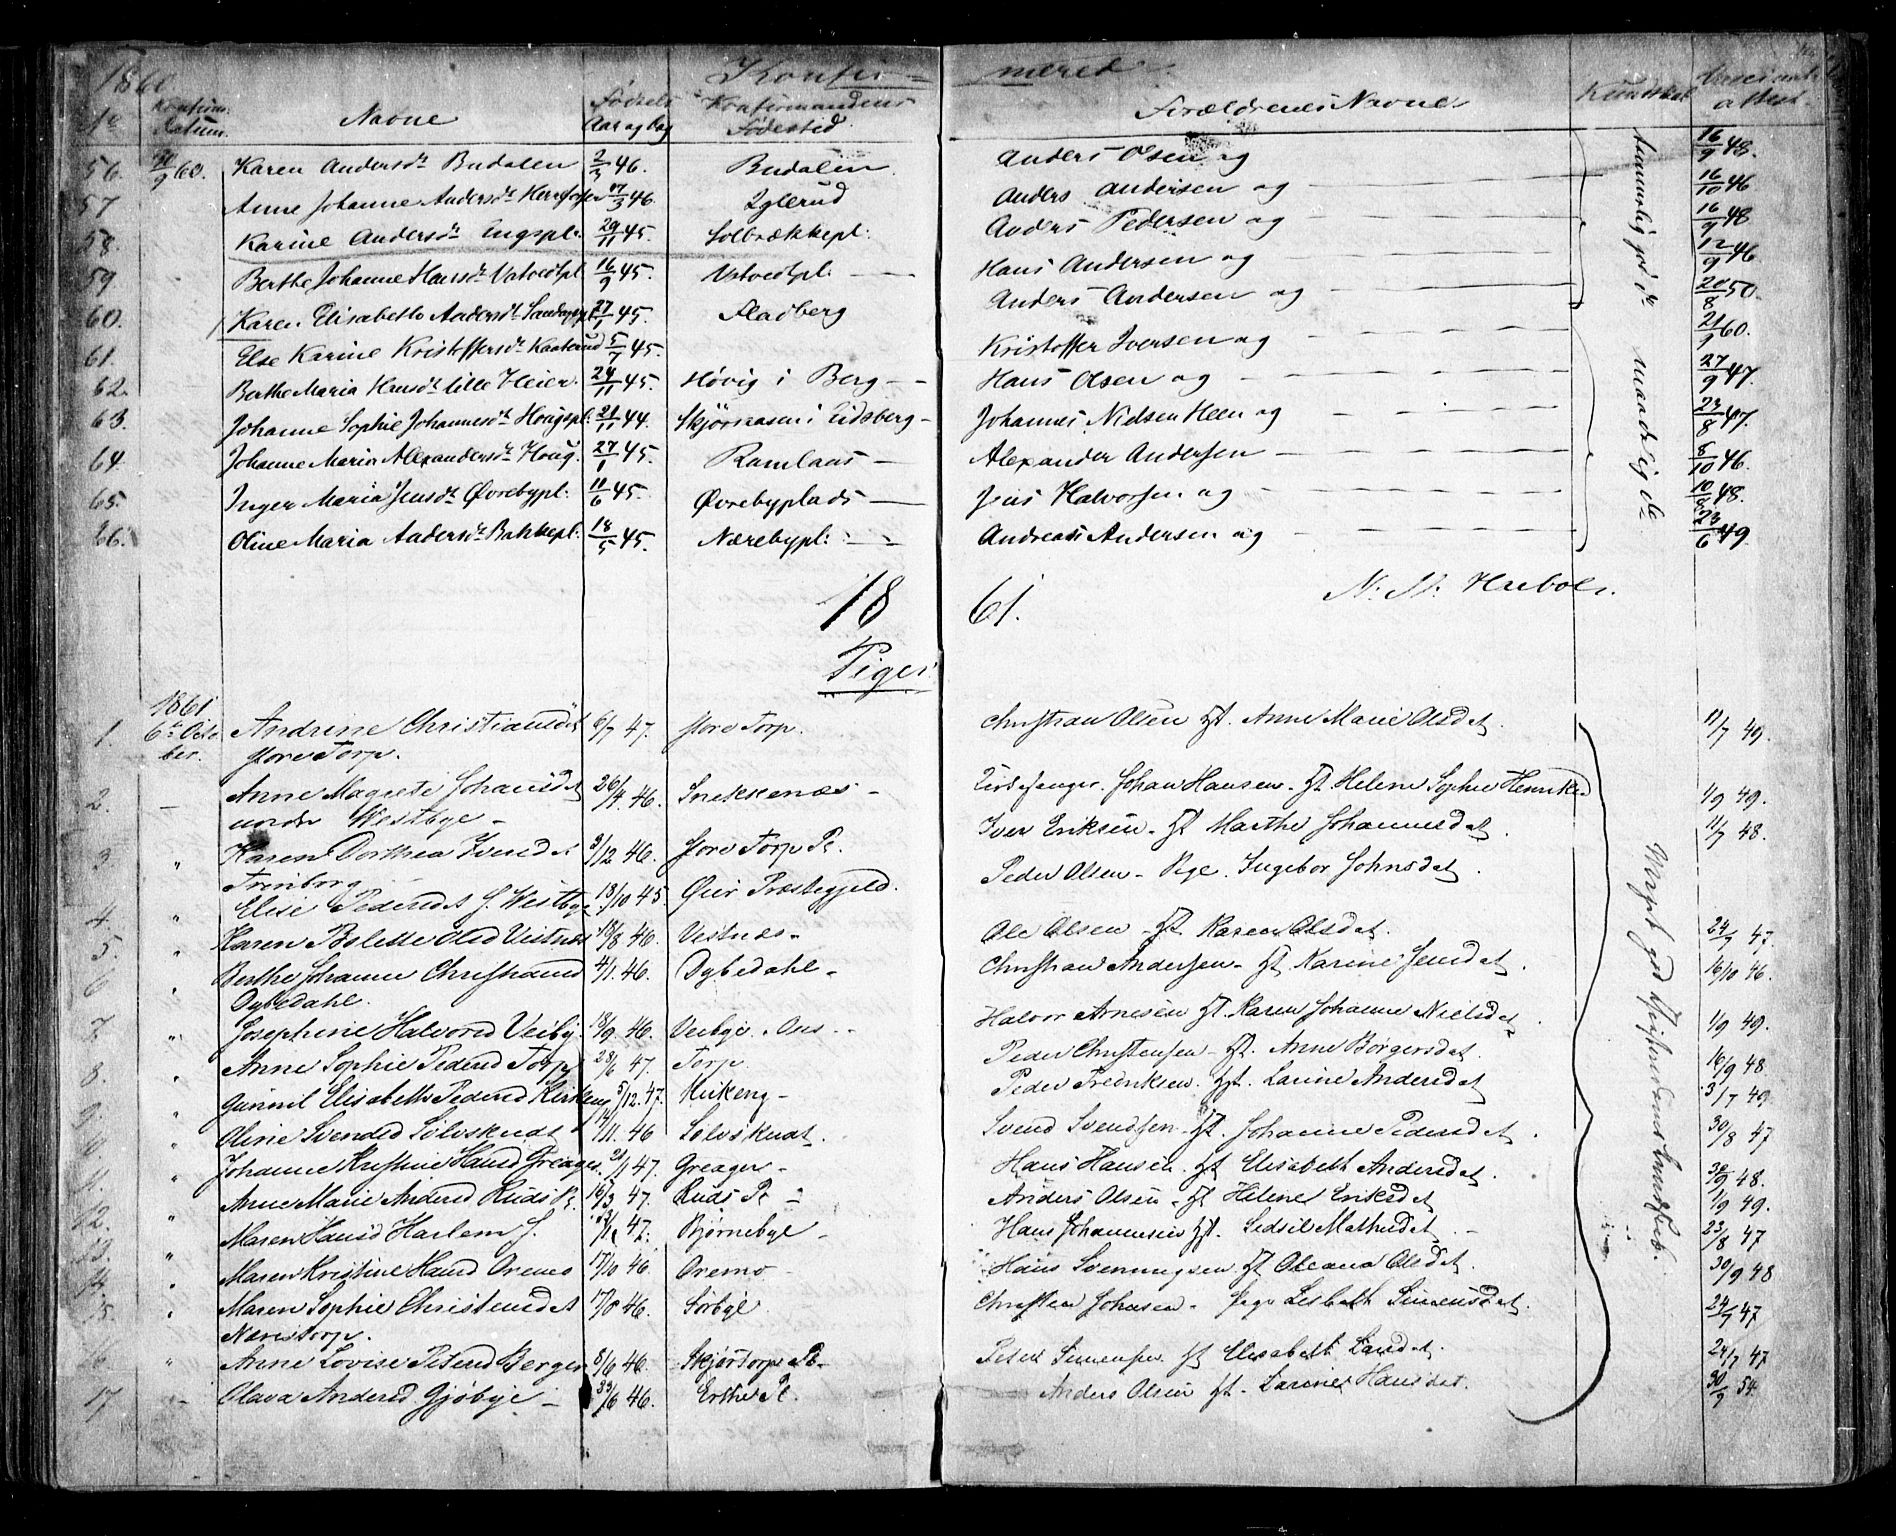 1860
Konfir=
meret
No
Konfirm. Datum.
Navne
Fødsels Aar og Dag
Konfirmandens Fødested.
Forældrenes Navne
Kundskab
56. 30/9 60. Karen Andersdr Budalen 2/3 46. Budalen. Anders Olsen og 16/9 48.
57 Anne Johanne Andersdr 17/3 46. Anders Andersen og 16/10 46
58. Karine Andersdr Engspl. 29/11 45. Solbrækkepl. Anders Pedersen og 16/9 48
59 Berthe Johanne Hansdr Vatvedtpl. 16/9 45. Vatvedtpl. Hans Andersen og 12/9 46
60. Karen Elisabeth Andersdr 27/1 45. Fladberg Anders Andersen og 20/8 50.
61. Else Karine Kristoffersdr 5/7 45. Kristoffer Iversen og 60.
62. Berthe Maria Hansdr Lille Heier. 24/11 45. Høvig i Berg Hans Olsen og 27/9 47.
63. Johanne Sophie Johannesdr Hougspl. 21/11 44. i Eidsberg Johannes Nielsen Heen og 23/8 47.
64. Johanne Maria Alexandersdr Houg. 27/1 45. Ramlaas Alexander Andersen 8/10 46.
65. Inger Maria Jensdr Øvrebypl. 11/6 45. Øvrebyplads Jens Halvorsen og 48.
66. Oline Maria Andersdr Bakkepl. 18/5 45. Nærebypl. Andreas Andersen og 23/6 49.
18
61.
Piger.
1861
1. 6te October. Andrine Christiansdat 6/7 47. store Torp. Christian Olsen Gt. Anne Marie Olsdat. 11/7 49.
store Torp.
2. Anne Magrete Johansdat 26/4 46. Snekkenæs Johan Hansen Gt Helene Sophie Henriksd 1/9 49.
nordre Westbye
3. Karen Dorthea Iversdat 3/12 46. store Torp Pl. Iver Eriksen Gt Marthe Johannesdat 11/7 48.
4. Elise Pedersdat S. Westbye 13/10 45 Øier Præstegjeld. Peder Olsen Pige Ingebor Johnsdat.
5. Karen Bolette Olsd Vestnæs 18/8 46. Vestnæs Ole Olsen Gt Karen Olsdat. 24/7 47.
6 Berthe Johanne Christiansd 4/1. 46. Dybedahl Christian Andersen Gt Karine Jensdat. 16/10 46.
Dybedahl.
7. Josephine Halvorsd Veiby. 18/9. 46. Veibye Halvor Arnesen Gt. Karen Johanne Nielsdat. 1/9 49.
8. Anne Sophie Pedersd Torp 28/6 47. Torp Peder Christensen Gt. Anne Børgersdat. 16/9 48.
9. Gunnil Elisabeth Pedersd Kirkeng 5/12. 47. Kirkeng Peder Fredriksen. Gt. Larine Andersdat 3/7 49.
10. Oline Svendsd Sølvskudt 14/11. 46 Sølvskudt. Svend Svendsen Gt. Johanne Pedersdat. 30/8 47
11. Johanne Kristine Hansd Greager. 21/1 47. Greager Hans Hansen Gt Elisabeth Andersdat. 30/9 48.
12. Anne Marie Andersd Ruds Pl. 16/3 47. Ruds Pl Anders Olsen Gt Helene Eriksdat 1/9 49.
13. Maren Hansd Harlem S. 47. Bjørnebye Hans Johannesen Gt. Sedsel Mathisdat. 23/8 47
14. Maren Kristine Hansd Oremo 17/10 46. Oremo Hans Svenningsen Gt Oleana Olsdat. 30/9 48
15. Maren Sophie Christensdat 17/8 46. Sørbye Christen Johnsen Pige Lisbeth Simensdat. 24/7 47
Næristorp.
16. Anne Lovise Petersd Bergen 8/6 46. Skjørtorp Pl. Peter Simensen Gt Elisabeth Larsdat. 24/7 47
17 Olava Andersd Gjøbye 6 46. Erthe Pl. Anders Olsen Gt. Larine Hansdat. 30/9 54.